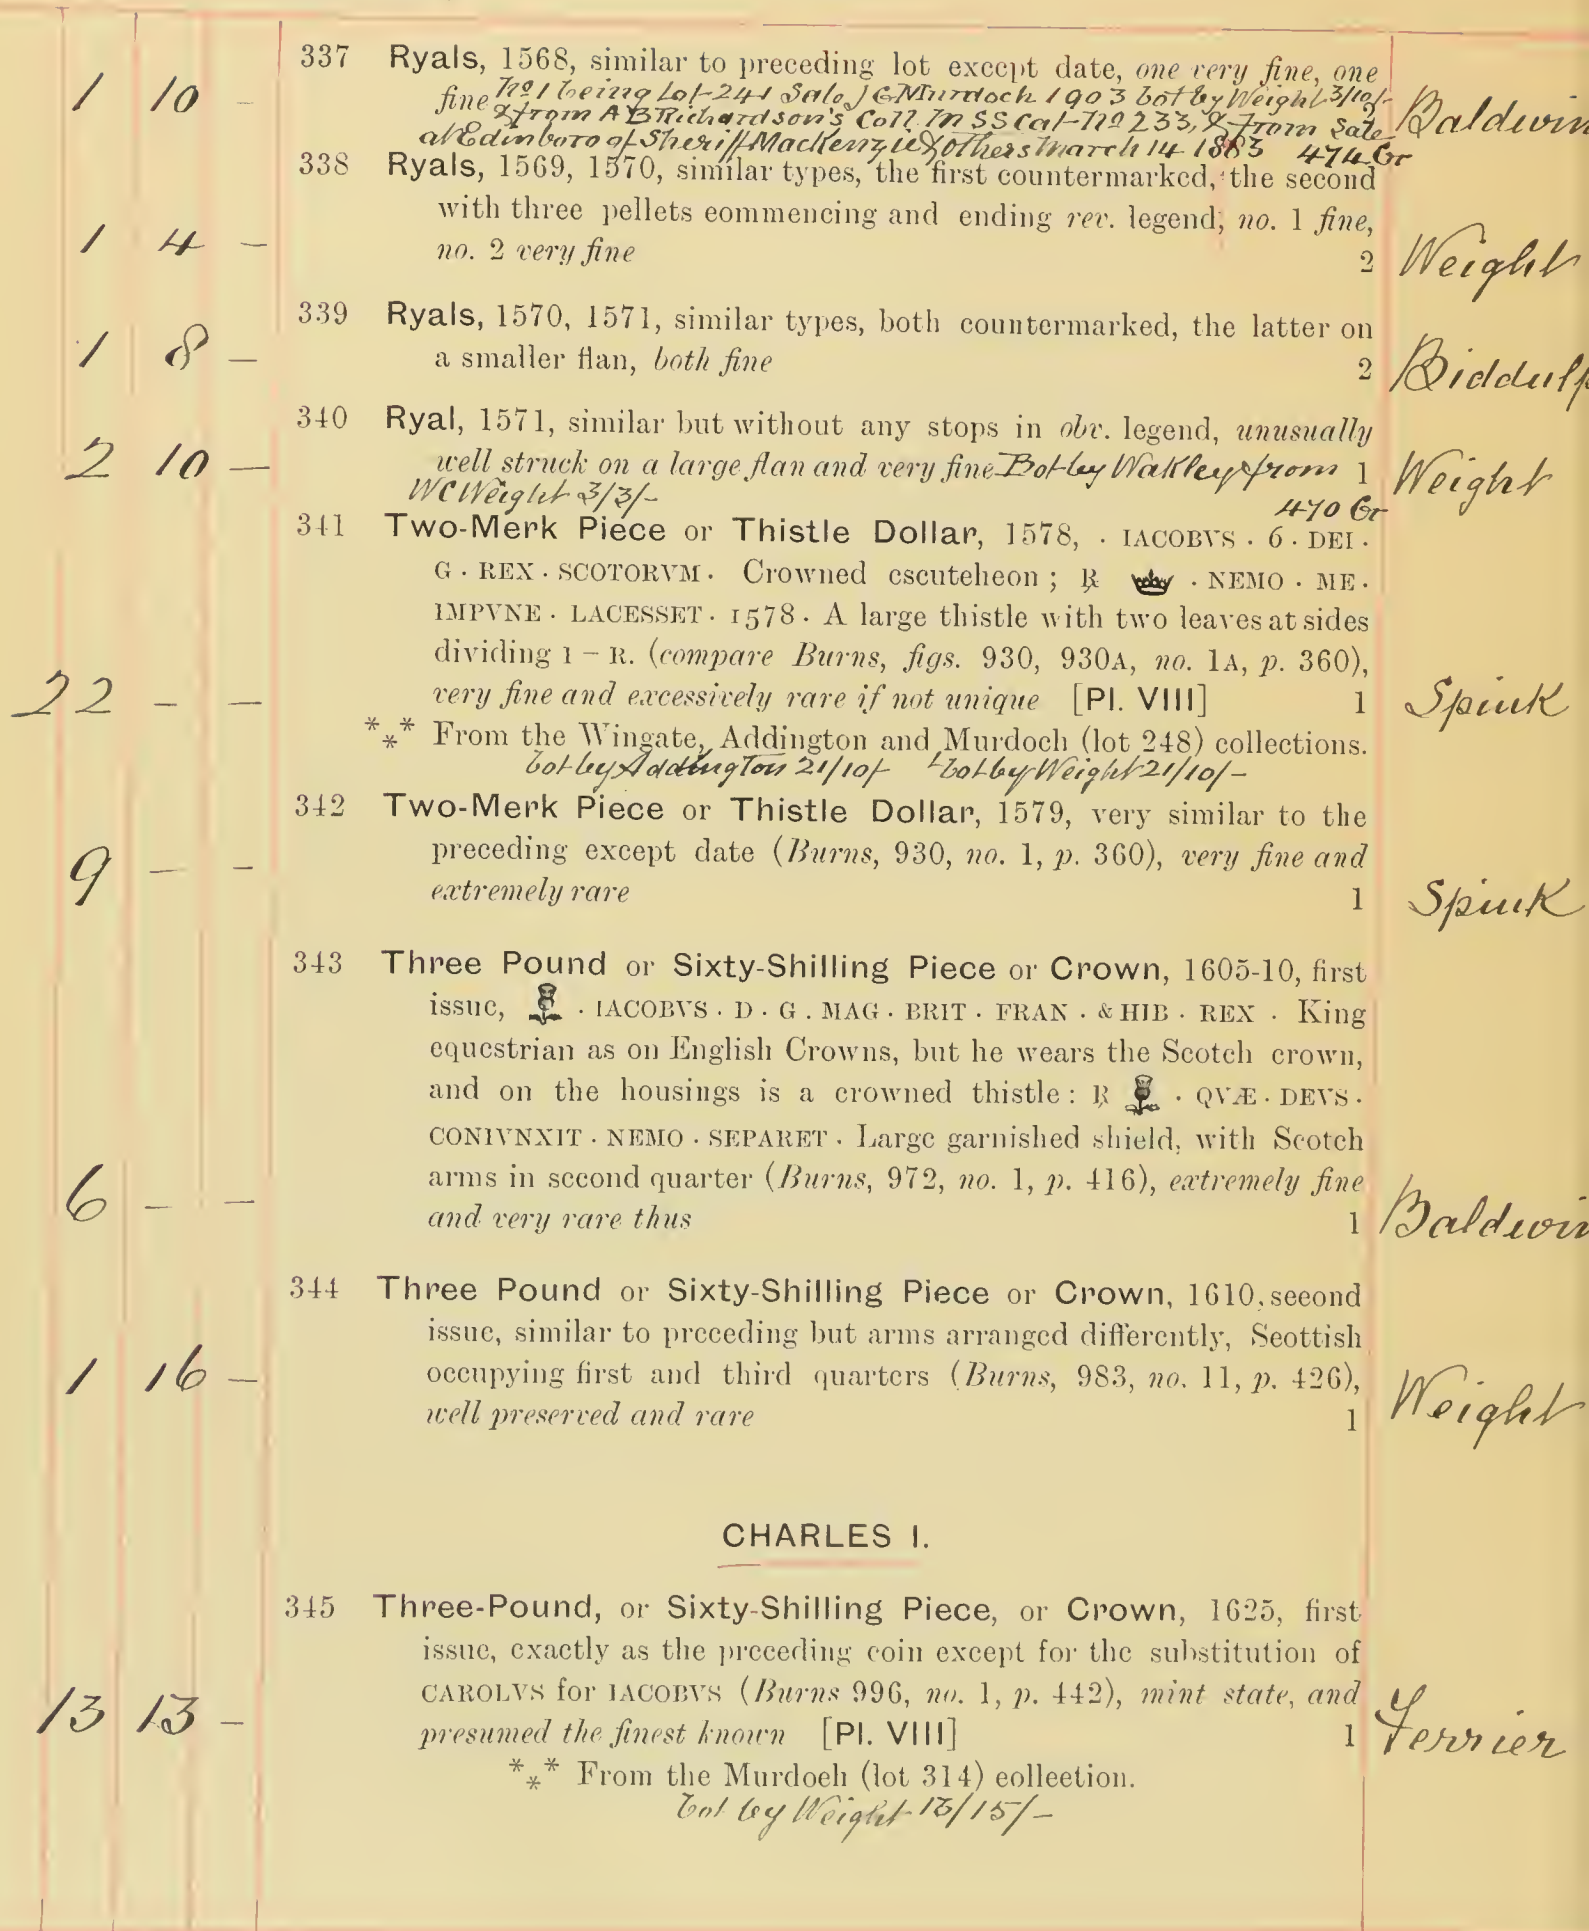 337 Ryals, 1568, similar to preceding lot except date, one very fine, one
1 10 - fine No 1 being Lot 241 Sale J G Murdoch 1903 bot by Weight 3/10/- 2 Baldwin
& from A B Richardson's Coll. MSS Cat No 233, & from Sale
at Edinboro of Sheriff MacKenzie & others March 14 1883 474 Gr
338 Ryals, 1569, 1570, similar types, the first countermarked, the second
with three pellets commencing and ending rev. legend, no. 1 fine,
1 4 - no. 2 very fine 2 Weight
339 Ryals, 1570, 1571, similar types, both countermarked, the latter on
1 8 - a smaller flan, both fine 2 Biddulp
340 Ryal, 1571, similar but without any stops in obv. legend, unusually
2 10 - well struck on a large flan and very fine Bot by Wakley & from 1 Weight
W C Weight 3/3/- 470 Gr
341 Two-Merk Piece or Thistle Dollar, 1578, · IACOBVS · 6 · DEI ·
G · REX · SCOTORVM · Crowned escutcheon ; ℞ · NEMO · ME ·
IMPVNE · LACESSET · 1578 · A large thistle with two leaves at sides
dividing I – R. (compare Burns, figs. 930, 930A, no. 1A, p. 360),
22 - - very fine and excessively rare if not unique [Pl. VIII] 1 Spink
*** From the Wingate, Addington and Murdoch (lot 248) collections.
bot by Addington 21/10/- bot by Weight 21/10/-
342 Two-Merk Piece or Thistle Dollar, 1579, very similar to the
preceding except date (Burns, 930, no. 1, p. 360), very fine and
9 - - extremely rare 1 Spink
343 Three Pound or Sixty-Shilling Piece or Crown, 1605-10, first
issue, · IACOBVS · D · G . MAG · BRIT · FRAN · & HIB · REX · King
equestrian as on English Crowns, but he wears the Scotch crown,
and on the housings is a crowned thistle: ℞ · QVÆ · DEVS ·
CONIVNXIT · NEMO · SEPARET · Large garnished shield, with Scotch
arms in second quarter (Burns, 972, no. 1, p. 416), extremely fine
6 - - and very rare thus 1 Baldwin
344 Three Pound or Sixty-Shilling Piece or Crown, 1610, second
issue, similar to preceding but arms arranged differently, Scottish
1 16 - occupying first and third quarters (Burns, 983, no. 11, p. 426),
well preserved and rare 1 Weight
CHARLES I.
345 Three-Pound, or Sixty-Shilling Piece, or Crown, 1625, first
issue, exactly as the preceding coin except for the substitution of
CAROLVS for IACOBVS (Burns 996, no. 1, p. 442), mint state, and
13 13 - presumed the finest known [Pl. VIII] 1 Ferrier
*** From the Murdoch (lot 314) collection.
bot by Weight 13/15/-